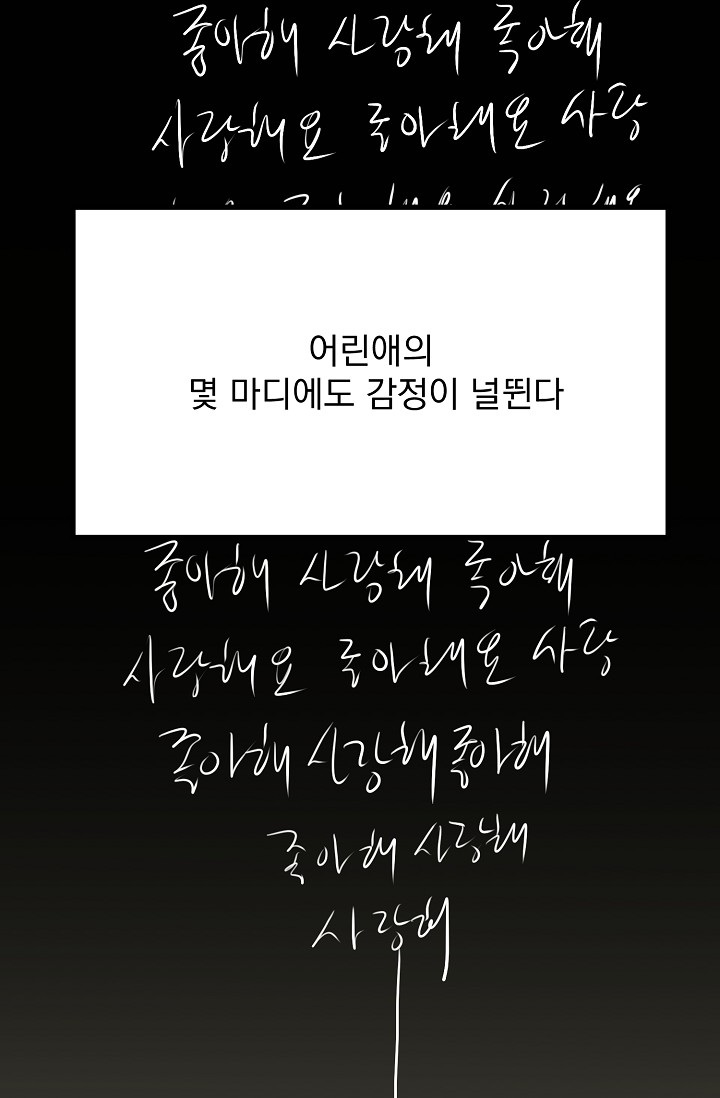 좋아해 사랑해 좋아해
사랑해요 좋아해요 사랑
어린애의
몇 마디에도 감정이 널뛴다
좋아해 사랑해 좋아해
사랑해요 좋아해요 사랑
좋아해 사랑해 좋아해
좋아해 사랑해
사랑해